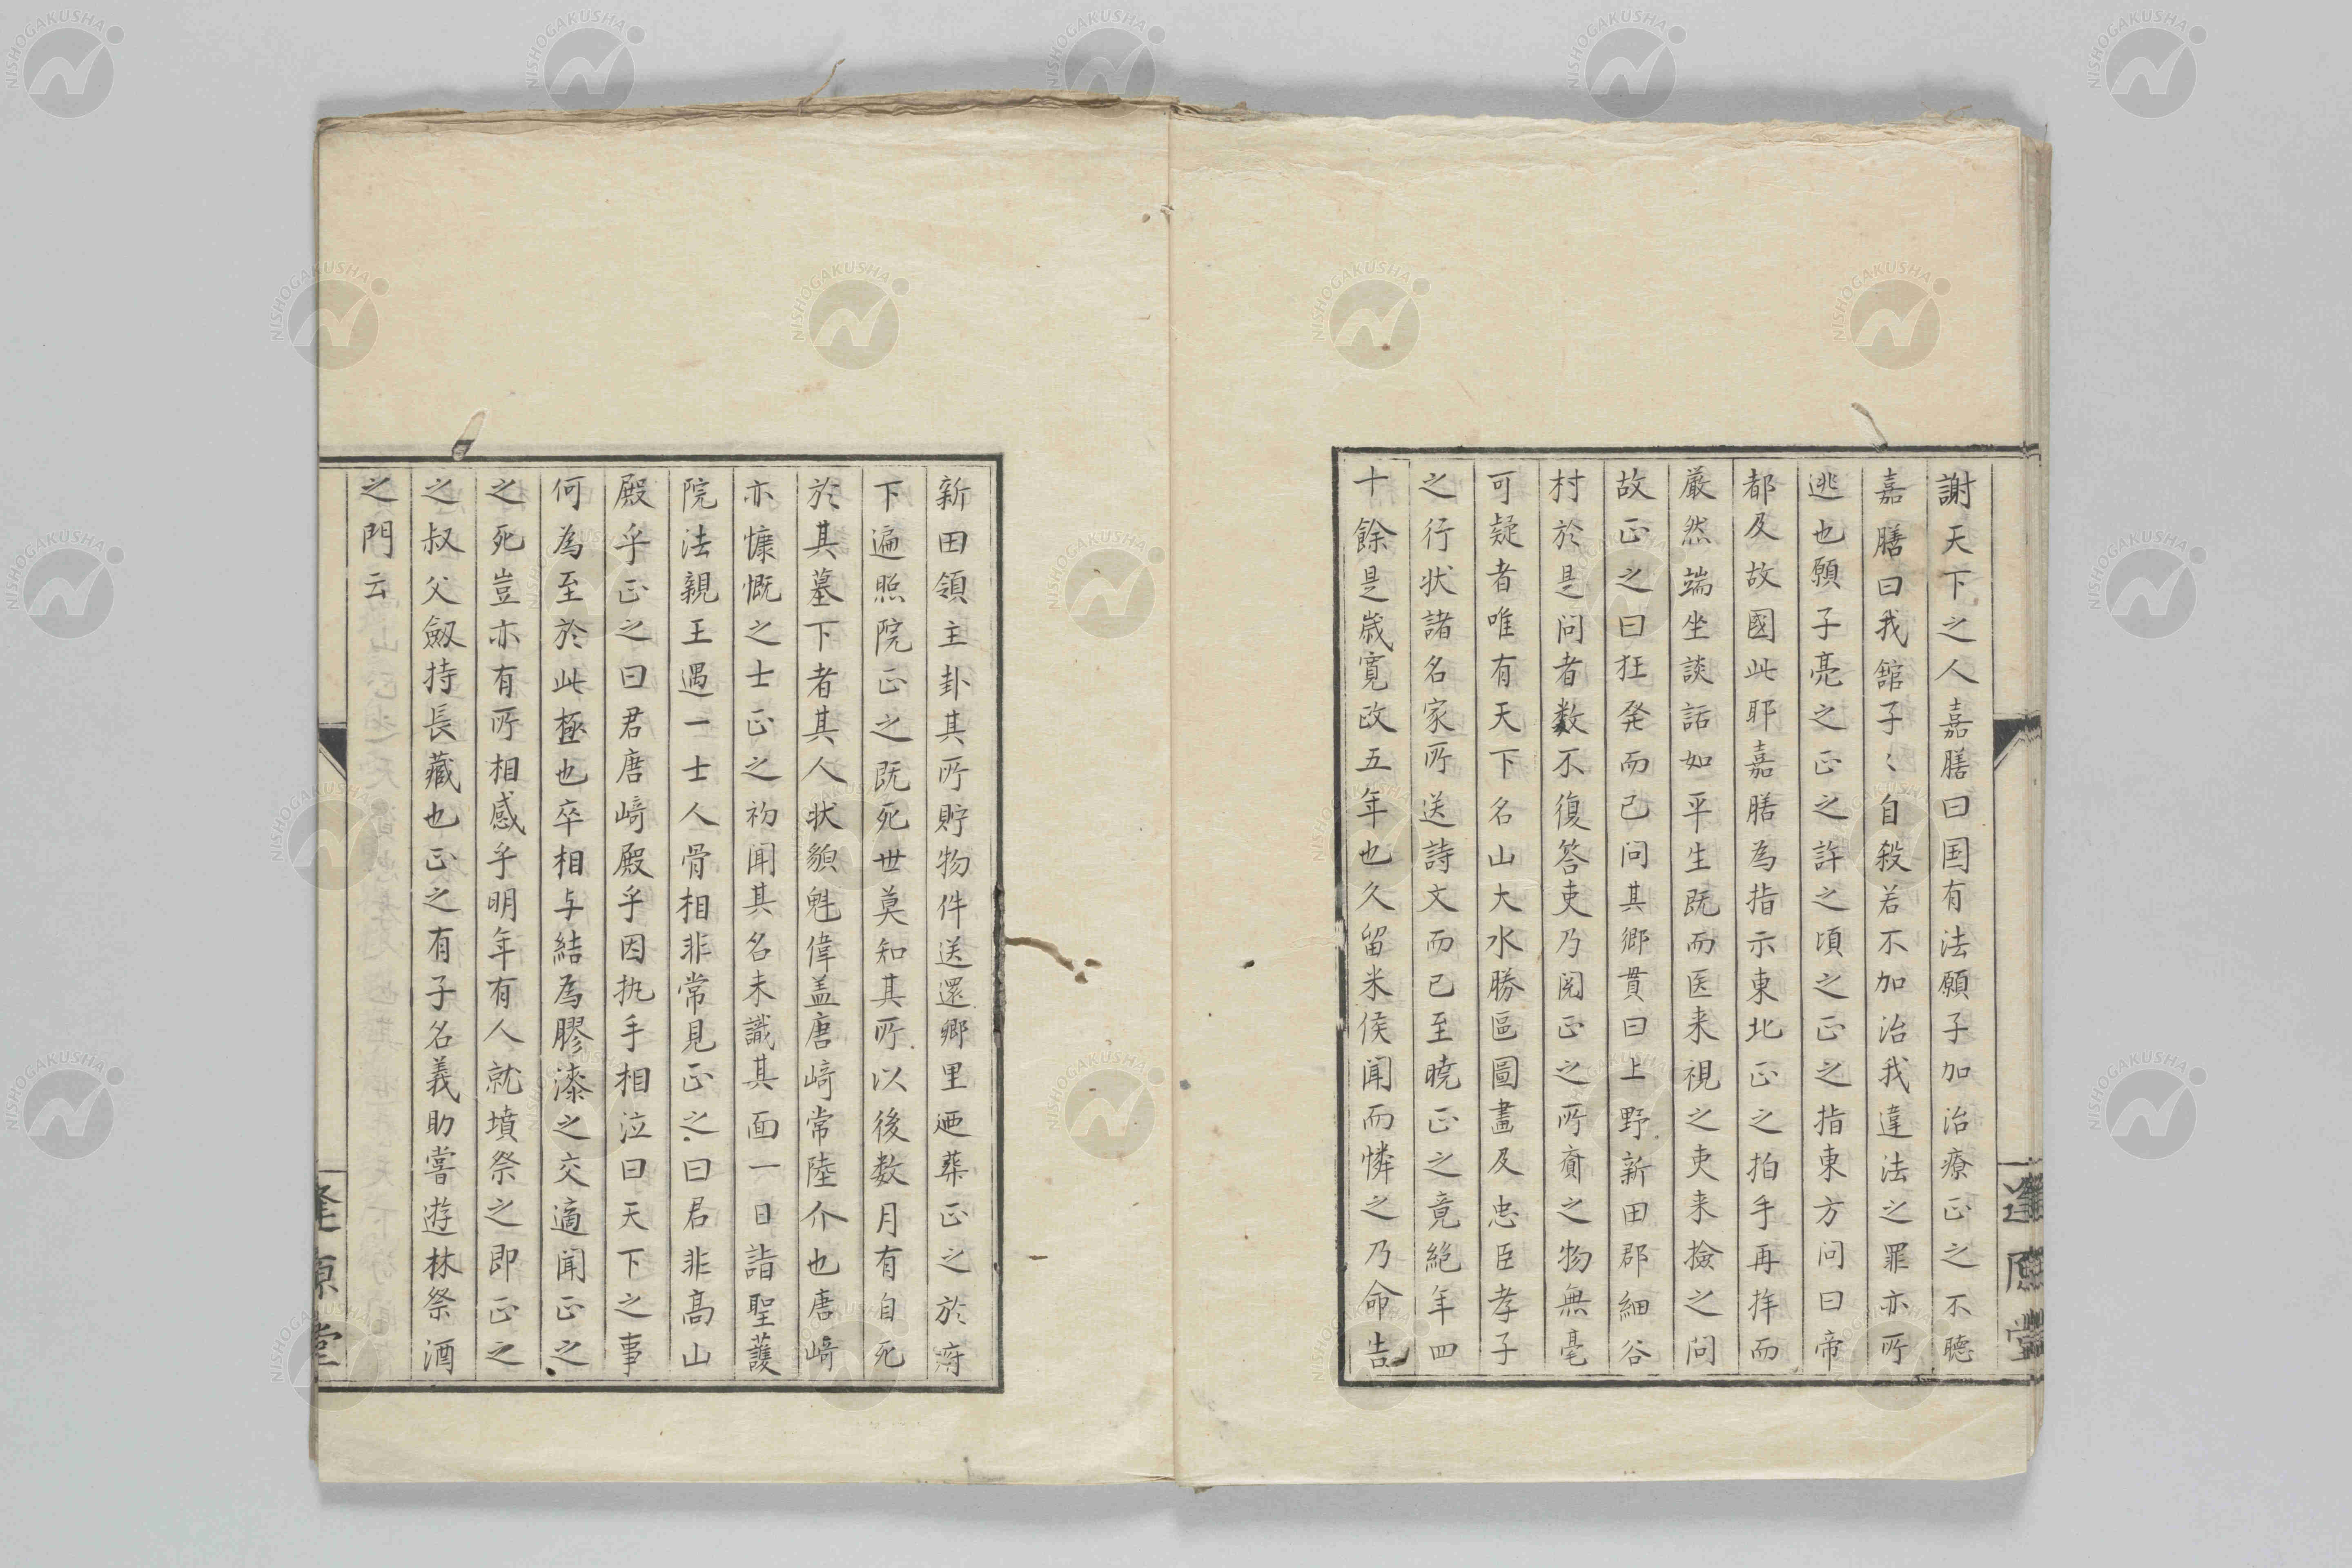 謝天下之人嘉膳曰国有法願子加治療正之不聴
嘉膳曰我舘子〻自殺若不加治我違法之罪亦所
逃也願子亮之正之許之頃之正之指東方问曰帝
都及故國此耶嘉膳為指示東北正之拍手再拝而
厳然端坐談話如平生既而医来視之吏来撿之问
故正之曰狂発而已问其郷貫曰上野新田郡細谷
村於是问者数不復答吏乃閲正之所賷之物無毫
可疑者唯有天下名山大水勝區圖畫及忠臣孝子
之行状諸名家所送詩文而已至暁正之竟絶年四
十餘是歳寛政五年也久留米侯闻而憐之乃命告
新田領主卦其所貯物件送還郷里廼葬正之於府
下遍照院正之既死世莫知其所以後数月有自死
於其墓下者其人状貌魁偉盖唐﨑常陸介也唐﨑
亦慷慨之士正之初闻其名未識其面一日詣聖護
院法親王遇一士人骨相非常見正之曰君非高山
殿乎正之曰君唐﨑殿乎因执手相泣曰天下之事
何為至於此極也卒相与結為膠漆之交適闻正之
之死豈亦有所相感乎明年有人就墳祭之即正之
之叔父劔持長藏也正之有子名義助嘗遊林祭酒
之門云
逢原堂